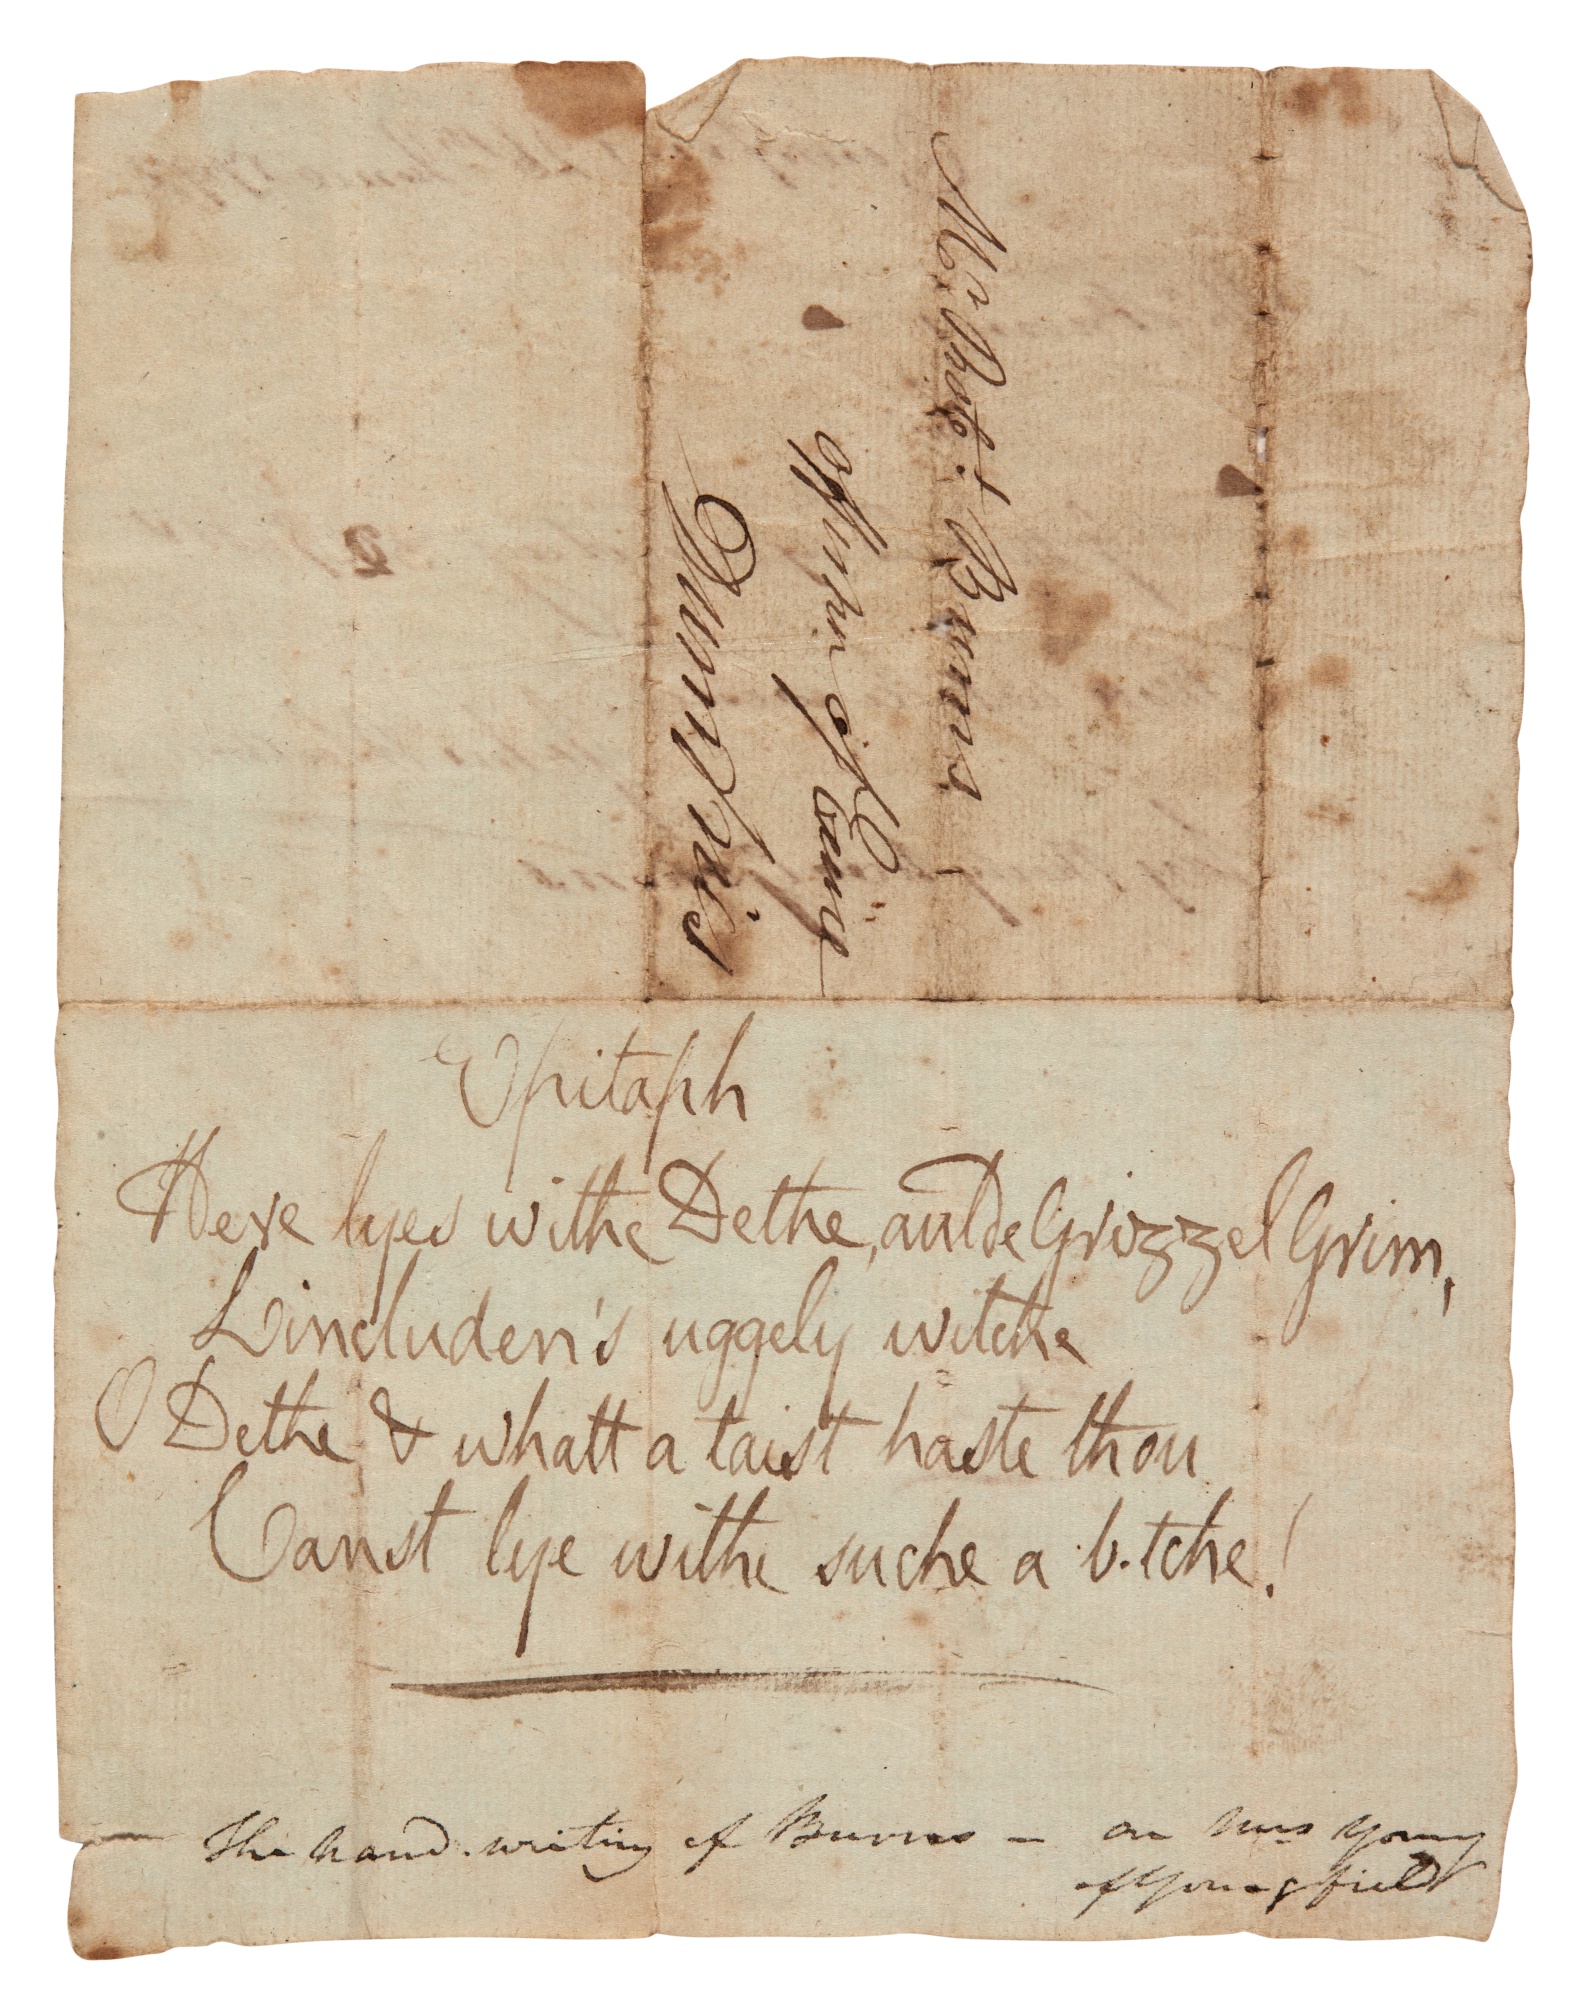 Mr Robt. Burns
officer of Excise
Dumfries
2
Epitaph
Here lyes withe Dethe, aulde Grizzel Grim,
Lincluden's uggely witche
O Dethe & whatt a taist haste thou
Canst lye withe suche a b.tche!
The hand-writing of Burns - on Mrs Young
of Youngfield